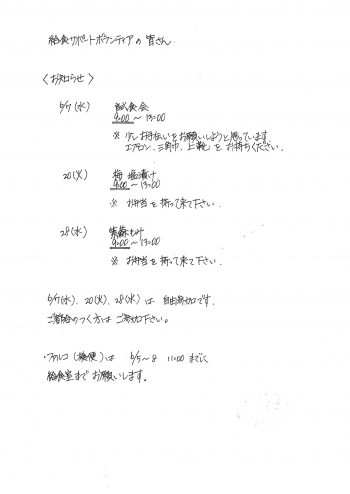 給食サポートボランティアの皆さん
〈お知らせ〉
(水) 試食会
9:00～13:00
※ 少しお手伝いをお願いしようと思っています。
エプロン、三角巾、上靴をお持ちください。
20(火) 梅塩漬け
9:00～13:00
※ お弁当を持って来て下さい。
28(水)
9:00～13:00
※ お弁当を持って来て下さい。
(水)、20(火)、28(水)は 自由参加です。
ご都合のつく方は ご参加下さい。
(検便)は 11:00までに
給食室までお願いします。